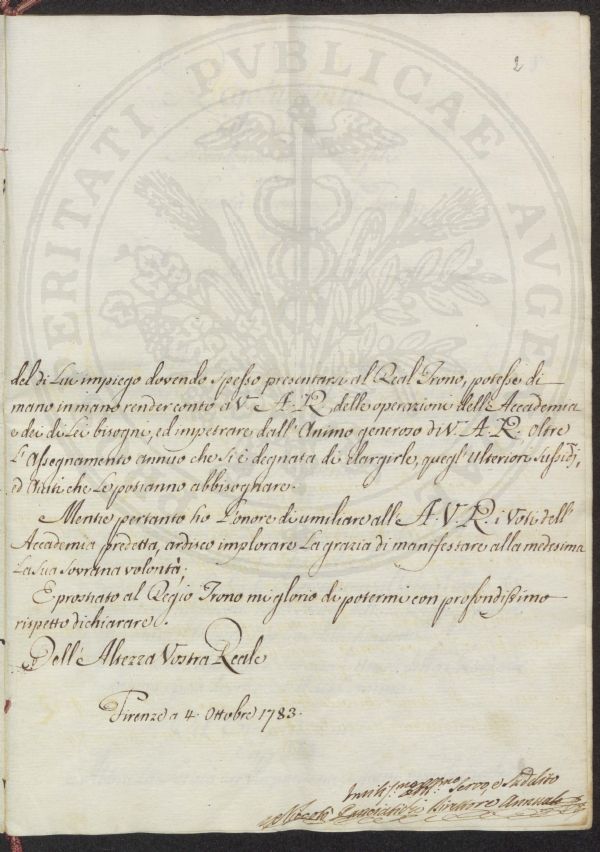 2
PROSPERITATI PUBLICAE AUGENDAE
del di Lui impiego dovendo spesso presentarsi al Real Trono, potesse di
mano in mano render conto a V. A. R. delle operazioni dell'Accademia
e dei di Lei bisogni, ed impetrare dall'Animo generoso di V. A. R. oltre
l'Assegnamento annuo che si è degnata di elargirle, quegl'ulteriori sussidj,
ed Aiuti che Le potranno abbisognare.
Mentre pertanto ho l'onore di umiliare all'A. V. R. i Voti dell'
Accademia predetta, ardisco implorare La grazia di manifestare alla medesima
La Sua Sovrana volontà.
E prostrato al Regio Trono mi glorio di potermi con profondissimo
rispetto dichiarare.
Dell'Altezza Vostra Reale
Firenze a 4. Ottobre 1783.
Servo, e Suddito
Direttore Annuale